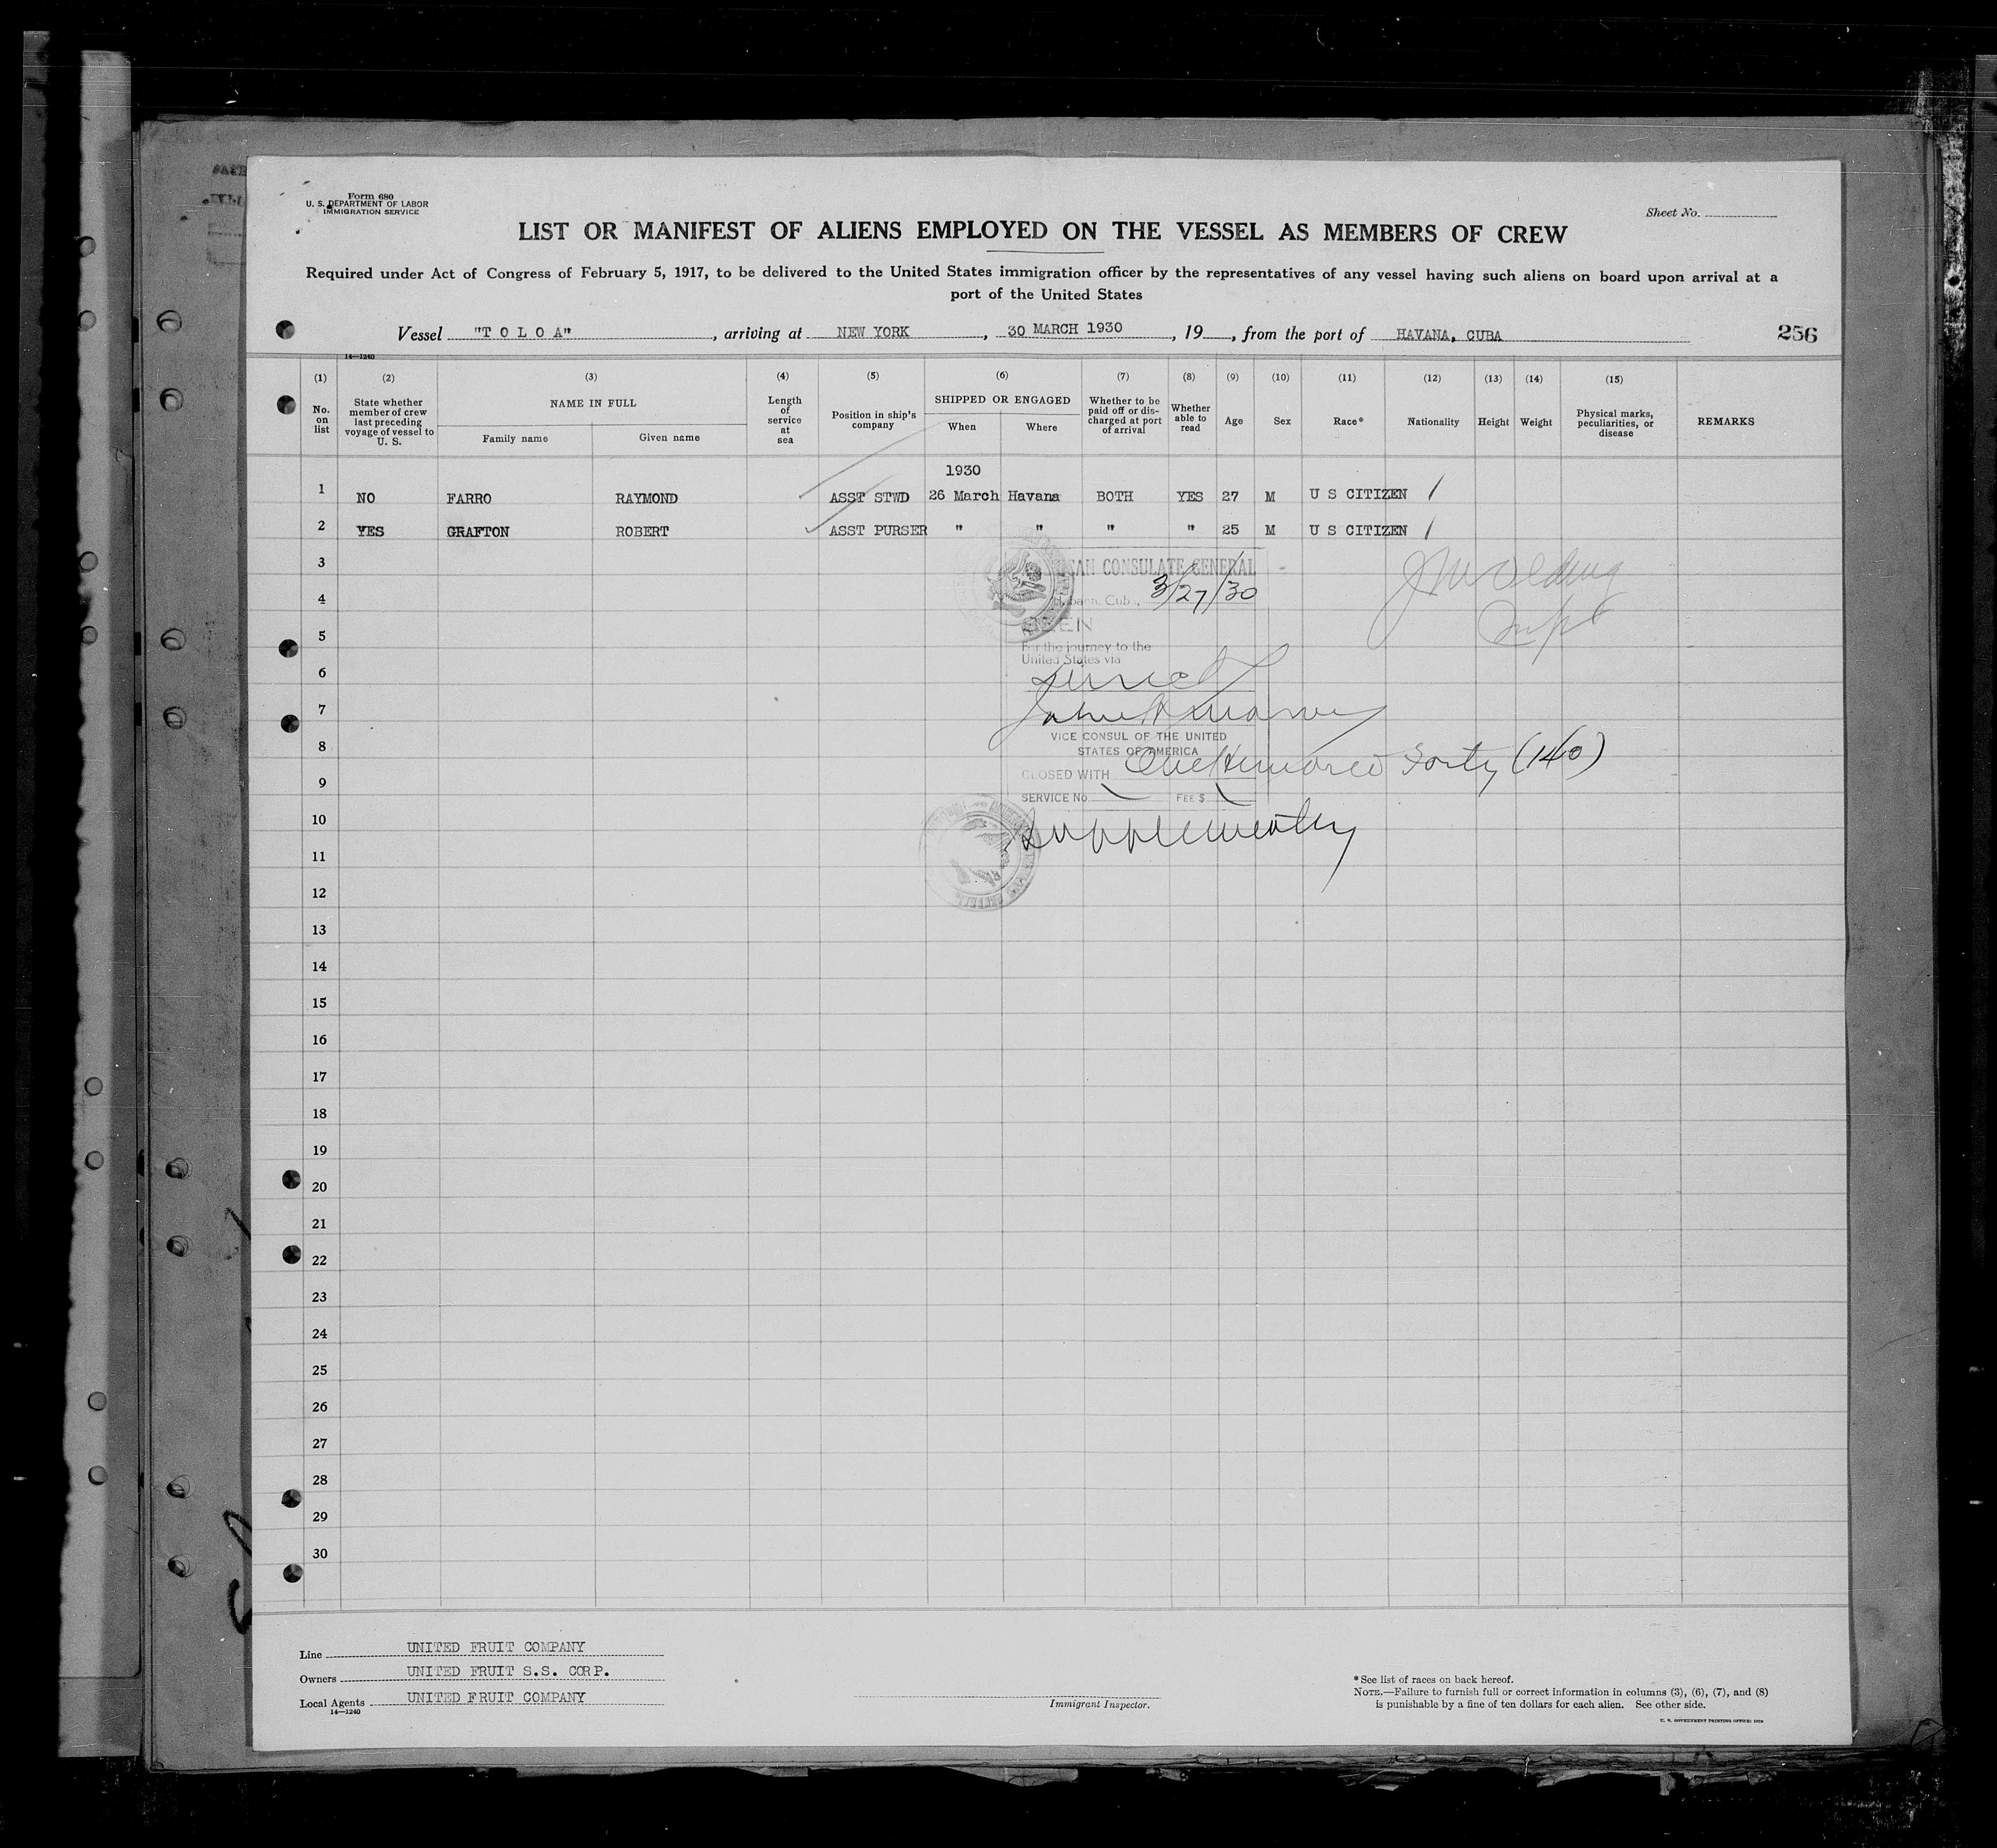 Form 680
U. S. DEPARTMENT OF LABOR
IMMIGRATION SERVICE
Sheet No.
LIST OR MANIFEST OF ALIENS EMPLOYED ON THE VESSEL AS MEMBERS OF CREW
Required under Act of Congress of February 5, 1917, to be delivered to the United States immigration officer by the representatives of any vessel having such aliens on board upon arrival at a
port of the United States
Vessel "T O L O A", arriving at NEW YORK, 30 MARCH 1930, 19, from the port of HAVANA, CUBA 256
14—1240
(1) (2) (3) (4) (5) (6) (7) (8) (9) (10) (11) (12) (13) (14) (15)
No. on list
State whether member of crew last preceding voyage of vessel to U. S.
NAME IN FULL
Family name Given name
Length of service at sea
Position in ship's company
SHIPPED OR ENGAGED
When Where
Whether to be paid off or discharged at port of arrival
Whether able to read
Age
Sex
Race*
Nationality
Height
Weight
Physical marks, peculiarities, or disease
REMARKS
1930
1 NO FARRO RAYMOND ASST STWD 26 March Havana BOTH YES 27 M U S CITIZEN
2 YES GRAFTON ROBERT ASST PURSER " " " " 25 M U S CITIZEN
3
CAN CONSULATE GENERAL
4
Cuba, 3/27/30
5
SEEN
For the journey to the
United States via
6
Direct
7
VICE CONSUL OF THE UNITED
8
STATES OF AMERICA
CLOSED WITH One Hundred Forty (140)
9
SERVICE No. FEE $
10
Supplementary
11
12
13
14
15
16
17
18
19
20
21
22
23
24
25
26
27
28
29
30
Line UNITED FRUIT COMPANY
Owners UNITED FRUIT S.S. CORP.
Local Agents UNITED FRUIT COMPANY
14—1240
Immigrant Inspector.
* See list of races on back hereof.
NOTE.—Failure to furnish full or correct information in columns (3), (6), (7), and (8)
is punishable by a fine of ten dollars for each alien. See other side.